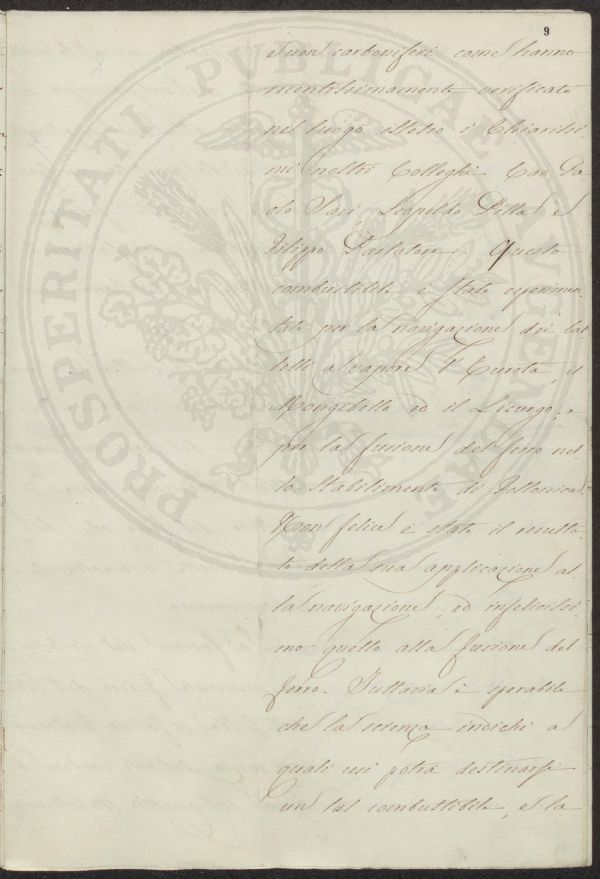 9
e non carboniferi come hanno
recentissimamente verificato
nel luogo istesso i Chiarissi
mi nostri Colleghi Cav. Pa
olo Savi, Leopoldo Pilla e
Filippo Parlatore. Questo
combustibile è stato esperimen
tato per la navigazione dei bat
telli a vapore l'Eurota, il
Mongibello ed il Licurgo, e
per la fusione del ferro nel
lo stabilimento di Follonica.
Non felice è stato il resulta
to della sua applicazione al
la navigazione, ed infelicissi
mo quello alla fusione del
ferro. Tuttavia è sperabile
che la scienza indichi a
quali usi potrà destinarsi
un tal combustibile, e la
PROSPERITATI PUBLICAE AUGENDAE